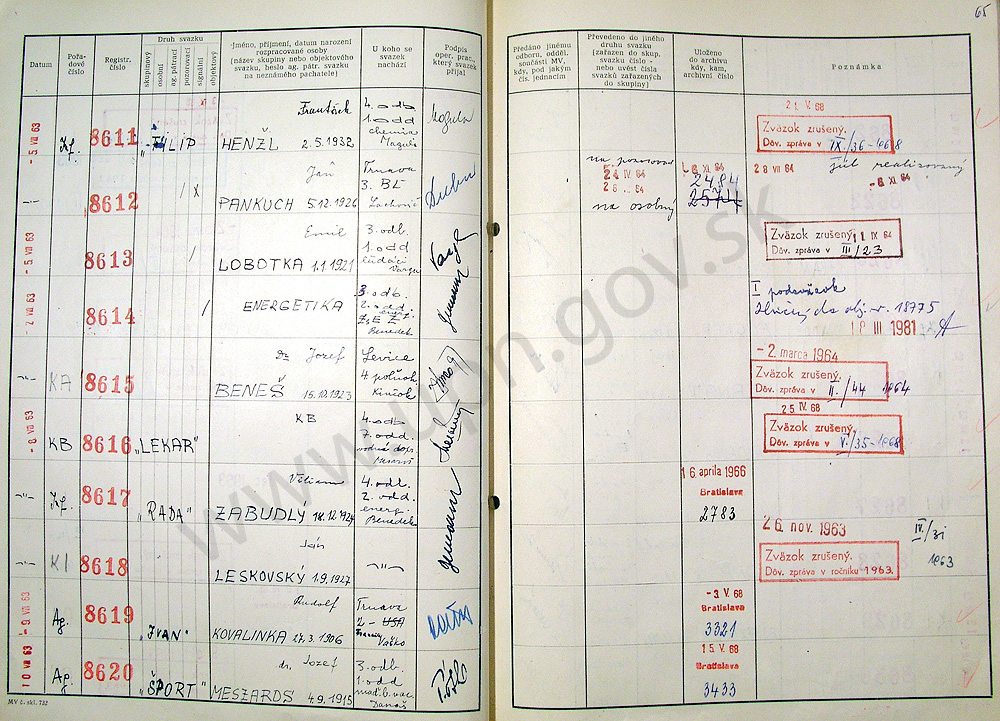 65
Datum
Pořa-
dové
číslo
Registr.
číslo
Druh svazku
skupinový
osobní
ag. pátrací
pozorovací
signální
objektový
Jméno, příjmení, datum narození
rozpracované osoby
(název skupiny nebo objektového
svazku, heslo ag. pátr. svazku
na neznámého pachatele)
U koho se
svazek
nachází
Podpis
oper. prac.,
který svazek
přijal
Předáno jinému
odboru, odděl.
součásti MV,
kdy, pod jakým
čís. jednacím
Převedeno do jiného
druhu svazku
(zařazen do skup.
svazku číslo -
nebo uvést čísla
svazků zařazených
do skupiny)
Uloženo
do archivu
kdy, kam,
archivní číslo
Poznámka
- 5. VII 63
Kf.
8611
„FILIP
František
HENŽL 2.5.1932
4. odb
1. odd
chemia
Magula
21. V. 68
Zväzok zrušený.
Dôv. zpráva v IX./36-1968
8612
/ X
Ján
PANKUCH 5.12.1926
Trnava
3. BL
na pozorovací
24 IV 64
na osobný
- 6 XI. 64
2484
2574
28 VII 64
júl realizovaný
- 6 XI. 64
- 5. VII 63
8613
/
Emil
LOBOTKA 1.1.1921
3. odb.
1. odd
ľudáci
Varga
Zväzok zrušený.
11. IX 64
Dôv. zpráva v III/23
8614
/
ENERGETIKA
3 odb.
2. odd
energ.
Benedek
I podsväzok
18775
18 III 1981
-„-
KA
8615
Dr Jozef
BENEŠ 15.10.1923
Levice
4 poľnoh.
- 2. marca 1964
Zväzok zrušený.
Dôv. zpráva v II./44 1964
- 8 VII 63
KB
8616
„LEKAR"
KB
4. odb
7. odd.
25 IV. 68
Zväzok zrušený.
Dôv. zpráva v V./35-1968
-„-
Kf.
8617
„RADA"
Viliam
ZABUDLY 18.12.1927
4. odb.
2. odd.
energ.
Benedek
16 apríla 1966
Bratislava
2783
-„-
KI
8618
Ján
LESKOVSKÝ 1.9.1927
-„-
26 nov. 1963
Zväzok zrušený.
Dôv. zpráva v ročníku 1963.
IV./31
1963
- 9. VII 63
Ag.
8619
„IVAN"
Rudolf
KOVALINKA 27.3.1906
Trnava
2 - USA
Vaško
- 3 V. 68
Bratislava
3321
10 VII 63
Ag.
8620
„ŠPORT"
dr. Jozef
MESZARDS 4.9.1915
3. odb.
1. odd
maď. b. vac.
Današ
15 V. 68
Bratislava
3433
MV č. skl. 732
www.upn.gov.sk